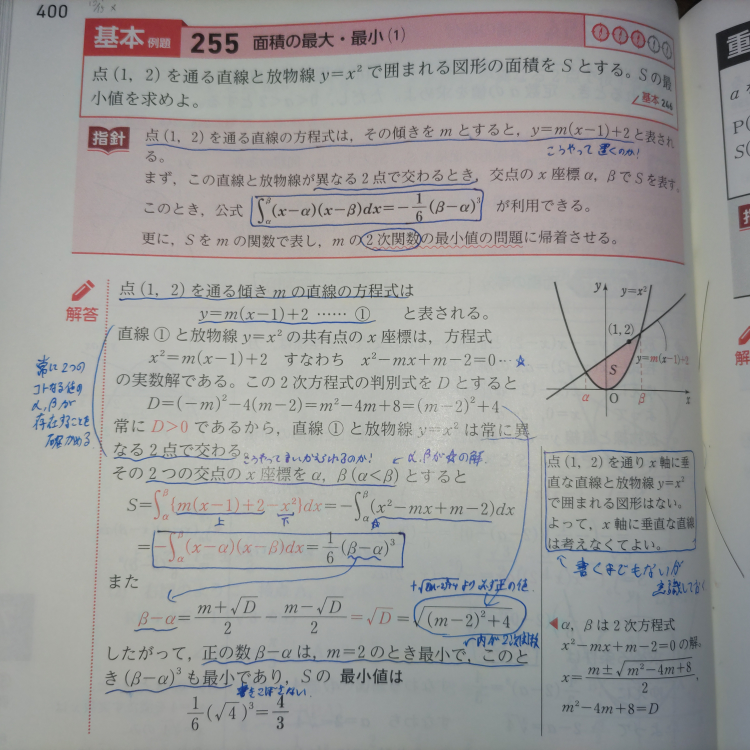 400
基本 例題 255 面積の最大・最小 (1)
点 (1, 2) を通る直線と放物線 y=x² で囲まれる図形の面積を S とする。S の最
小値を求めよ。
基本 246
指針
点 (1, 2) を通る直線の方程式は，その傾きを m とすると，y=m(x−1)+2 と表され
る。
こうやって置くのか!
まず，この直線と放物線が異なる 2 点で交わるとき，交点の x 座標 α, β で S を表す。
このとき，公式 ∫_α^β (x−α)(x−β)dx=−1/6(β−α)³ が利用できる。
更に，S を m の関数で表し，m の 2 次関数の最小値の問題に帰着させる。
解答
点 (1, 2) を通る傾き m の直線の方程式は
y=m(x−1)+2 …… ① と表される。
直線 ① と放物線 y=x² の共有点の x 座標は，方程式
x²=m(x−1)+2 すなわち x²−mx+m−2=0 …☆
の実数解である。この 2 次方程式の判別式を D とすると
D=(−m)²−4(m−2)=m²−4m+8=(m−2)²+4
常に D>0 であるから，直線 ① と放物線 y=x² は常に異
なる 2 点で交わる。
常に2つの
コトなる
α,βが
存在することを
確かめる
← α,βが☆の解.
その 2 つの交点の x 座標を α, β (α<β) とすると
S=∫_α^β {m(x−1)+2−x²}dx=−∫_α^β (x²−mx+m−2)dx
上 下 ☆
=−∫_α^β (x−α)(x−β)dx=1/6(β−α)³
また
β−α=(m+√D)/2−(m−√D)/2=√D=√((m−2)²+4)
内が2次関数
したがって，正の数 β−α は，m=2 のとき最小で，このと
き (β−α)³ も最小であり，S の 最小値は
1/6(√4)³=4/3
y
y=x²
(1, 2)
y=m(x−1)+2
S
α O β x
点 (1, 2) を通り x 軸に垂
直な直線と放物線 y=x²
で囲まれる図形はない。
よって，x 軸に垂直な直線
は考えなくてよい。
↑ 書くまでもないが
意識しておく
◀α, β は 2 次方程式
x²−mx+m−2=0 の解。
x=(m±√(m²−4m+8))/2,
m²−4m+8=D
重
a
P(
S(
指
解